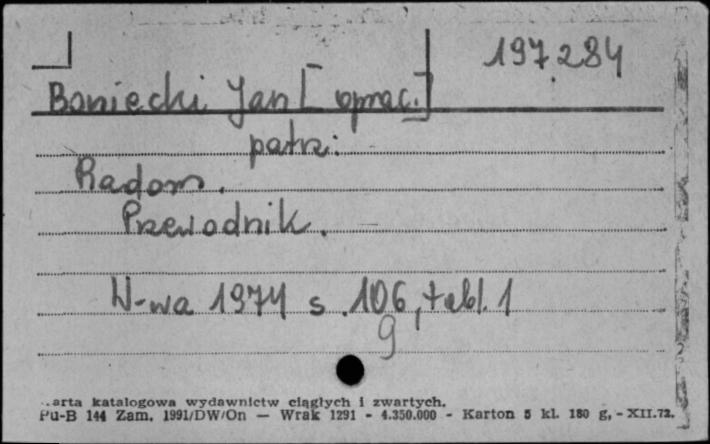 197.284
Boniecki Jan [oprac.]
patrz:
Radom.
Przewodnik.
W-wa 1974 s. 106, tabl. 1
9
arta katalogowa wydawnictw ciągłych i zwartych.
Pu-B 144 Zam. 1991/DW/On — Wrak 1291 - 4.350.000 - Karton 5 kl. 180 g, - XII.72.